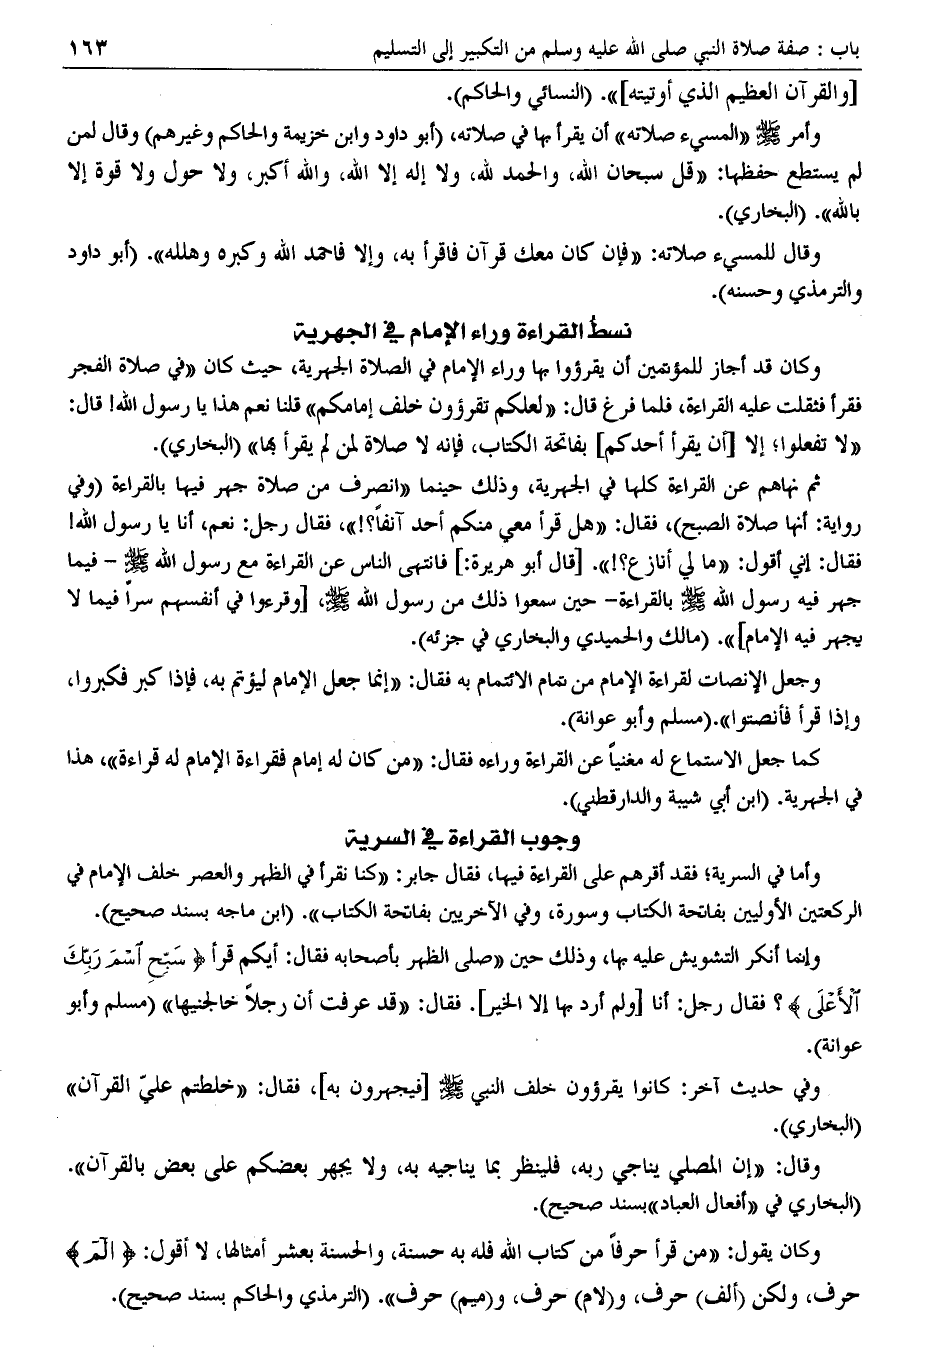 باب : صفة صلاة النبي صلى الله عليه وسلم من التكبير إلى التسليم ١٦٣
[والقرآن العظيم الذي أوتيته]». (النسائي والحاكم).
وأمر ﷺ «المسيء صلاته» أن يقرأ بها في صلاته، (أبو داود وابن خزيمة والحاكم وغيرهم) وقال لمن
لم يستطع حفظها: «قل سبحان الله، والحمد لله، ولا إله إلا الله، والله أكبر، ولا حول ولا قوة إلا
بالله». (البخاري).
وقال للمسيء صلاته: «فإن كان معك قرآن فاقرأ به، وإلا فاحمد الله وكبره وهلله». (أبو داود
والترمذي وحسنه).
نسطُ القراءة وراء الإمام في الجهرية
وكان قد أجاز للمؤتمين أن يقرؤوا بها وراء الإمام في الصلاة الجهرية، حيث كان «في صلاة الفجر
فقرأ فثقلت عليه القراءة، فلما فرغ قال: «لعلكم تقرؤون خلف إمامكم» قلنا نعم هذا يا رسول الله! قال:
«لا تفعلوا؛ إلا [أن يقرأ أحدكم] بفاتحة الكتاب، فإنه لا صلاة لمن لم يقرأ بها» (البخاري).
ثم نهاهم عن القراءة كلها في الجهرية، وذلك حينما «انصرف من صلاة جهر فيها بالقراءة (وفي
رواية: أنها صلاة الصبح)، فقال: «هل قرأ معي منكم أحد آنفاً؟!»، فقال رجل: نعم، أنا يا رسول الله!
فقال: إني أقول: «ما لي أنازع؟!». [قال أبو هريرة:] فانتهى الناس عن القراءة مع رسول الله ﷺ – فيما
جهر فيه رسول الله ﷺ بالقراءة– حين سمعوا ذلك من رسول الله ﷺ، [وقرءوا في أنفسهم سراً فيما لا
يجهر فيه الإمام]». (مالك والحميدي والبخاري في جزئه).
وجعل الإنصات لقراءة الإمام من تمام الائتمام به فقال: «إنما جعل الإمام ليؤتم به، فإذا كبر فكبروا،
وإذا قرأ فأنصتوا».(مسلم وأبو عوانة).
كما جعل الاستماع له مغنياً عن القراءة وراءه فقال: «من كان له إمام فقراءة الإمام له قراءة»، هذا
في الجهرية. (ابن أبي شيبة والدارقطني).
وجوب القراءة في السرية
وأما في السرية؛ فقد أقرهم على القراءة فيها، فقال جابر: «كنا نقرأ في الظهر والعصر خلف الإمام في
الركعتين الأوليين بفاتحة الكتاب وسورة، وفي الآخريين بفاتحة الكتاب». (ابن ماجه بسند صحيح).
وإنما أنكر التشويش عليه بها، وذلك حين «صلى الظهر بأصحابه فقال: أيكم قرأ ﴿ سَبِّحِ ٱسْمَ رَبِّكَ
ٱلْأَعْلَى ﴾ ؟ فقال رجل: أنا [ولم أرد بها إلا الخير]. فقال: «قد عرفت أن رجلاً خالجنيها» (مسلم وأبو
عوانة).
وفي حديث آخر: كانوا يقرؤون خلف النبي ﷺ [فيجهرون به]، فقال: «خلطتم عليّ القرآن»
(البخاري).
وقال: «إن المصلي يناجي ربه، فلينظر بما يناجيه به، ولا يجهر بعضكم على بعض بالقرآن».
(البخاري في «أفعال العباد»بسند صحيح).
وكان يقول: «من قرأ حرفاً من كتاب الله فله به حسنة، والحسنة بعشر أمثالها، لا أقول: ﴿ الٓمٓ ﴾
حرف، ولكن (ألف) حرف، و(لام) حرف، و(ميم) حرف». (الترمذي والحاكم بسند صحيح).